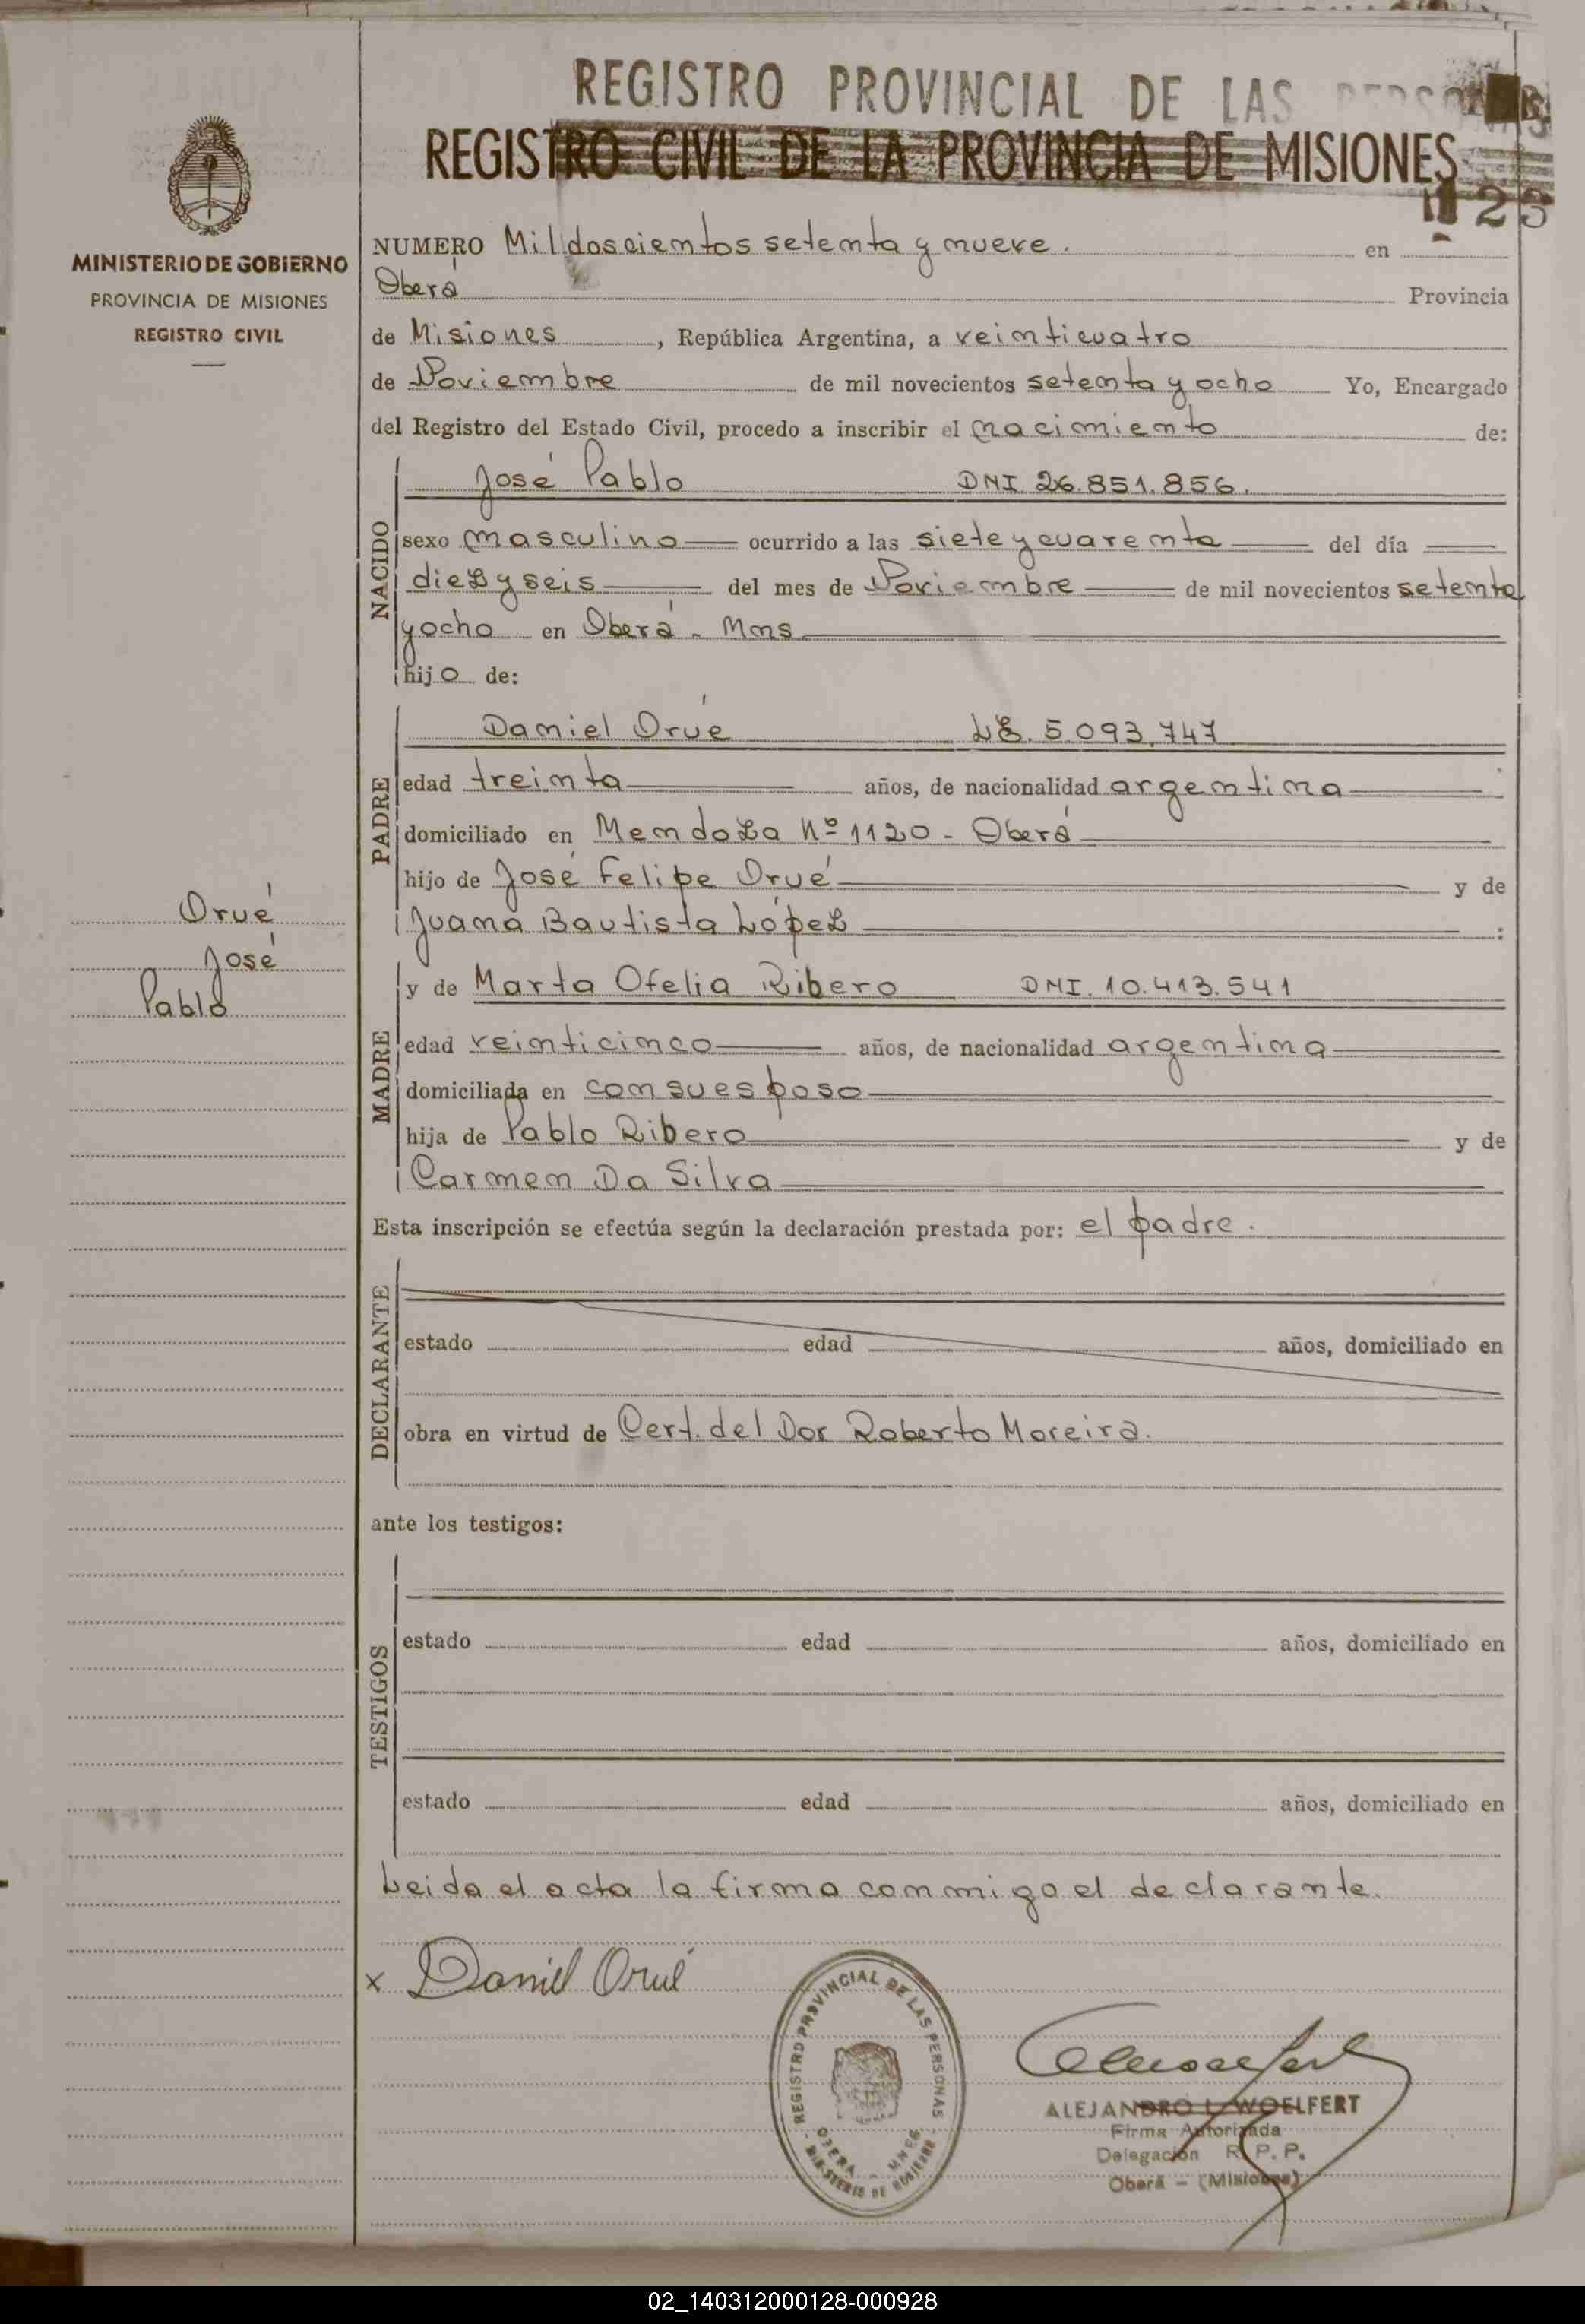 REGISTRO PROVINCIAL DE LAS PERSONAS
REGISTRO CIVIL DE LA PROVINCIA DE MISIONES
123
MINISTERIO DE GOBIERNO
PROVINCIA DE MISIONES
REGISTRO CIVIL
NUMERO Mil doscientos setenta y nueve. en
Oberá Provincia
de Misiones, República Argentina, a veinticuatro
de Noviembre de mil novecientos setenta y ocho Yo, Encargado
del Registro del Estado Civil, procedo a inscribir el nacimiento de:
NACIDO
José Pablo DNI 26.851.856.
sexo masculino ocurrido a las siete y cuarenta del día
diez y seis del mes de Noviembre de mil novecientos setenta
y ocho en Oberá - Mns
hijo de:
PADRE
Daniel Orué LE. 5.093.747
edad treinta años, de nacionalidad argentina
domiciliado en Mendoza Nº 1120 - Oberá
hijo de José Felipe Orué y de
Juana Bautista López :
Orué
José
Pablo
MADRE
y de Marta Ofelia Ribero DNI. 10.413.541
edad veinticinco años, de nacionalidad argentina
domiciliada en con su esposo
hija de Pablo Ribero y de
Carmen Da Silva
Esta inscripción se efectúa según la declaración prestada por: el padre.
DECLARANTE
estado edad años, domiciliado en
obra en virtud de Cert. del Dor Roberto Moreira.
ante los testigos:
TESTIGOS
estado edad años, domiciliado en
estado edad años, domiciliado en
Leida el acta la firma conmigo el declarante.
x Daniel Orué
REGISTRO PROVINCIAL DE LAS PERSONAS
OBERA - MNES
MINISTERIO DE GOBIERNO
ALEJANDRO L. WOELFERT
Firma Autorizada
Delegación R. P. P.
Oberá - (Misiones)
02_140312000128-000928